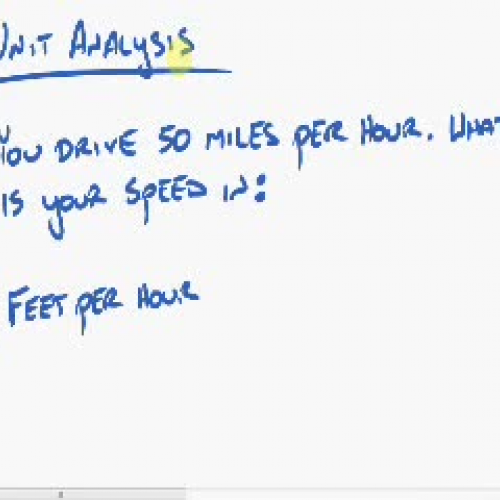 UNIT ANALYSIS
YOU DRIVE 50 MILES PER HOUR. WHAT
IS YOUR SPEED IN:
FEET PER HOUR